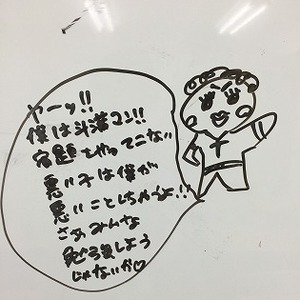 ヤーッ!!
僕は斗満マン!!
宿題をやってこない
悪い子は僕が
悪いことしちゃうよ!!
さあみんな
勉強しよう
じゃないか♡